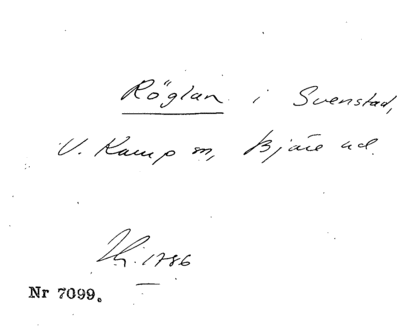 Röglan i Svenstad,
V. Karup sn, Bjäre hd.
1786
Nr 7099.